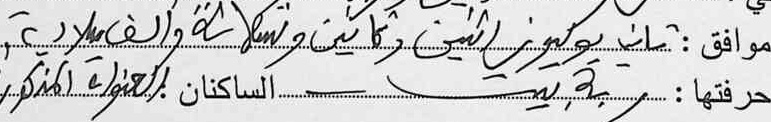 موافق : ثمان يوليوز اثنين وثمانين وتسعمائة وألف ميلادية
حرفتها : ربة بيت الساكنان بالعنوان المذكور